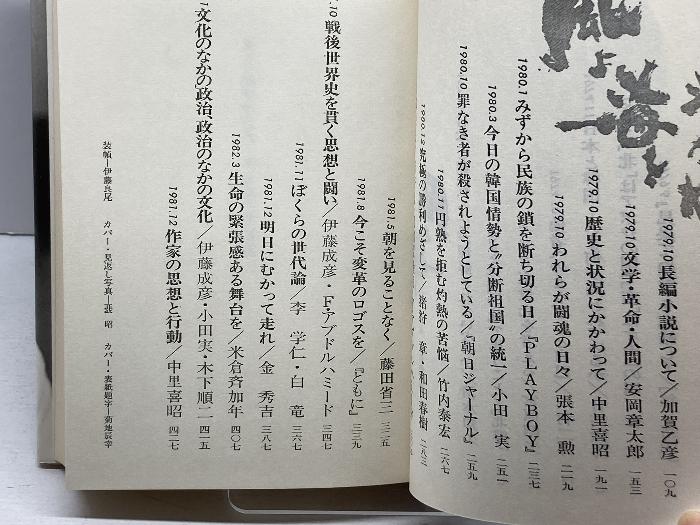 風よ 海よ
1979.10 長編小説について／加賀乙彦 一〇九
1979.10 文学・革命・人間／安岡章太郎 一五三
1979.10 歴史と状況にかかわって／中里喜昭 一九一
1979.10 われらが闘魂の日々／張本 勲 二一九
1980.1 みずから民族の鎖を断ち切る日／『PLAYBOY』 二三七
1980.3 今日の韓国情勢と“分断祖国”の統一／小田 実 二五一
1980.10 罪なき者が殺されようとしている／『朝日ジャーナル』 二五九
1980.11 円熟を拒む灼熱の苦悩／竹内泰宏 二六七
1980.12 究極の勝利めざして／猪狩 章・和田春樹 二八三
1981.5 朝を見ることなく／藤田省三 三二五
1981.8 今こそ変革のロゴスを／『ともに』 三三九
.10 戦後世界史を貫く思想と闘い／伊藤成彦・F・アブドルハミード 三四七
1981.11 ぼくらの世代論／李 学仁・白 竜 三六七
1981.12 明日にむかって走れ／金 秀吉 三八七
1982.3 生命の緊張感ある舞台を／米倉斉加年 四〇七
文化のなかの政治、政治のなかの文化／伊藤成彦・小田実・木下順二 四一五
1981.12 作家の思想と行動／中里喜昭 四二七
装幀―伊藤良尾 カバー・見返し写真―張 昭 カバー・表紙題字―菊地辰幸